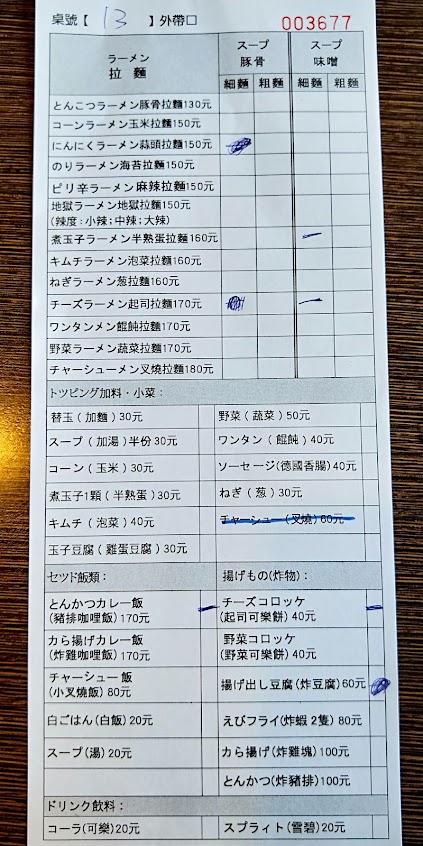 桌號【 13 】外帶口 003677
ラーメン
拉 麵
スープ
豚骨
スープ
味噌
細麵 粗麵 細麵 粗麵
とんこつラーメン豚骨拉麵130元
コーンラーメン玉米拉麵150元
にんにくラーメン蒜頭拉麵150元
のりラーメン海苔拉麵150元
ピリ辛ラーメン麻辣拉麵150元
地獄ラーメン地獄拉麵150元
(辣度:小辣;中辣;大辣)
煮玉子ラーメン半熟蛋拉麵160元
キムチラーメン泡菜拉麵160元
ねぎラーメン葱拉麵160元
チーズラーメン起司拉麵170元
ワンタンメン餛飩拉麵170元
野菜ラーメン蔬菜拉麵170元
チャーシューメン叉燒拉麵180元
トツピング加料・小菜:
替玉(加麵)30元 野菜(蔬菜)50元
スープ(加湯)半份30元 ワンタン(餛飩)40元
コーン(玉米)30元 ソーセージ(德國香腸)40元
煮玉子1顆(半熟蛋)30元 ねぎ(葱)30元
キムチ(泡菜)40元 チャーシュー(叉燒)60元
玉子豆腐(雞蛋豆腐)30元
セツド飯類: 揚げもの(炸物):
とんかつカレー飯
(豬排咖哩飯)170元
チーズコロッケ
(起司可樂餅)40元
カら揚げカレー飯
(炸雞咖哩飯)170元
野菜コロッケ
(野菜可樂餅)40元
チャーシュー飯
(小叉燒飯)80元
揚げ出し豆腐(炸豆腐)60元
白ごはん(白飯)20元 えびフライ(炸蝦2隻)80元
スープ(湯)20元 カら揚げ(炸雞塊)100元
とんかつ(炸豬排)100元
ドリンク飲料:
コーラ(可樂)20元 スプライト(雪碧)20元